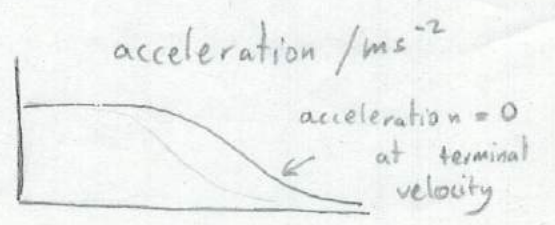 acceleration /ms⁻²
acceleration = 0
at terminal
velocity